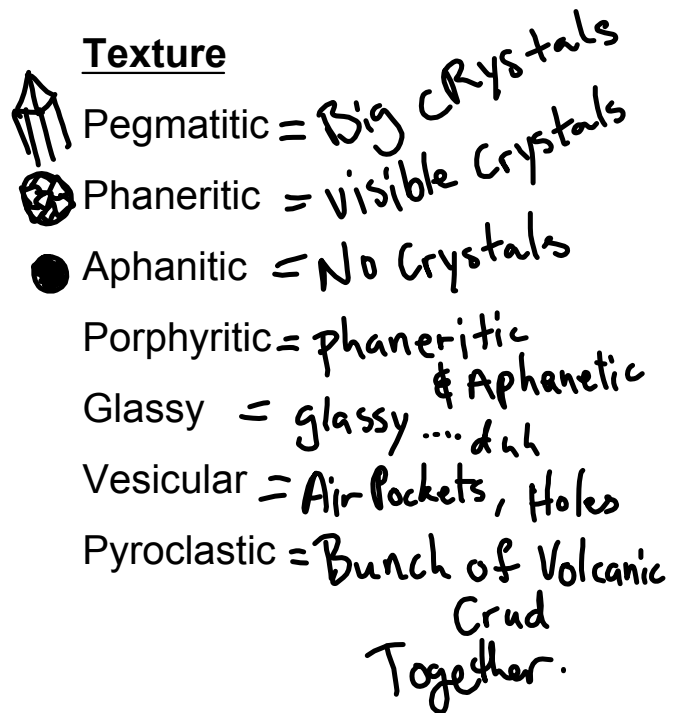 Texture
Pegmatitic = Big cRystals
Phaneritic = visible Crystals
Aphanitic = No Crystals
Porphyritic = phaneritic
& Aphanetic
Glassy = glassy .... duh
Vesicular = Air Pockets, Holes
Pyroclastic = Bunch of Volcanic
Crud
Together.